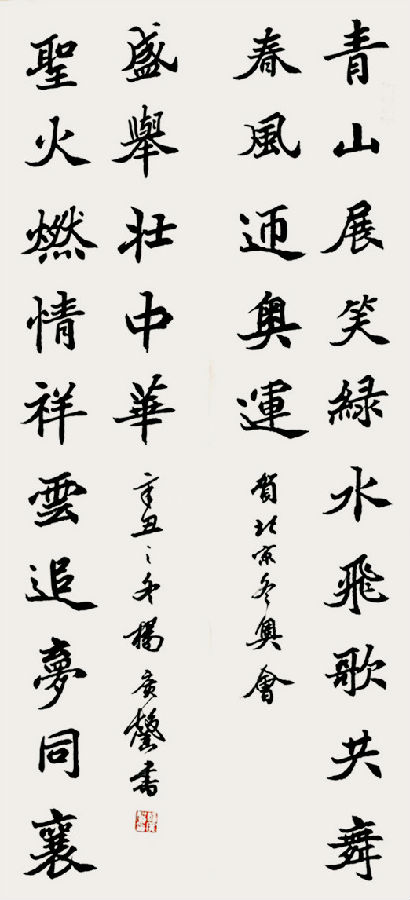 青山展笑緑水飛歌共舞
春風迎奧運
賀北京冬奧會
聖火燃情祥雲追夢同襄
盛舉壯中華
辛丑之年楊廣馨書